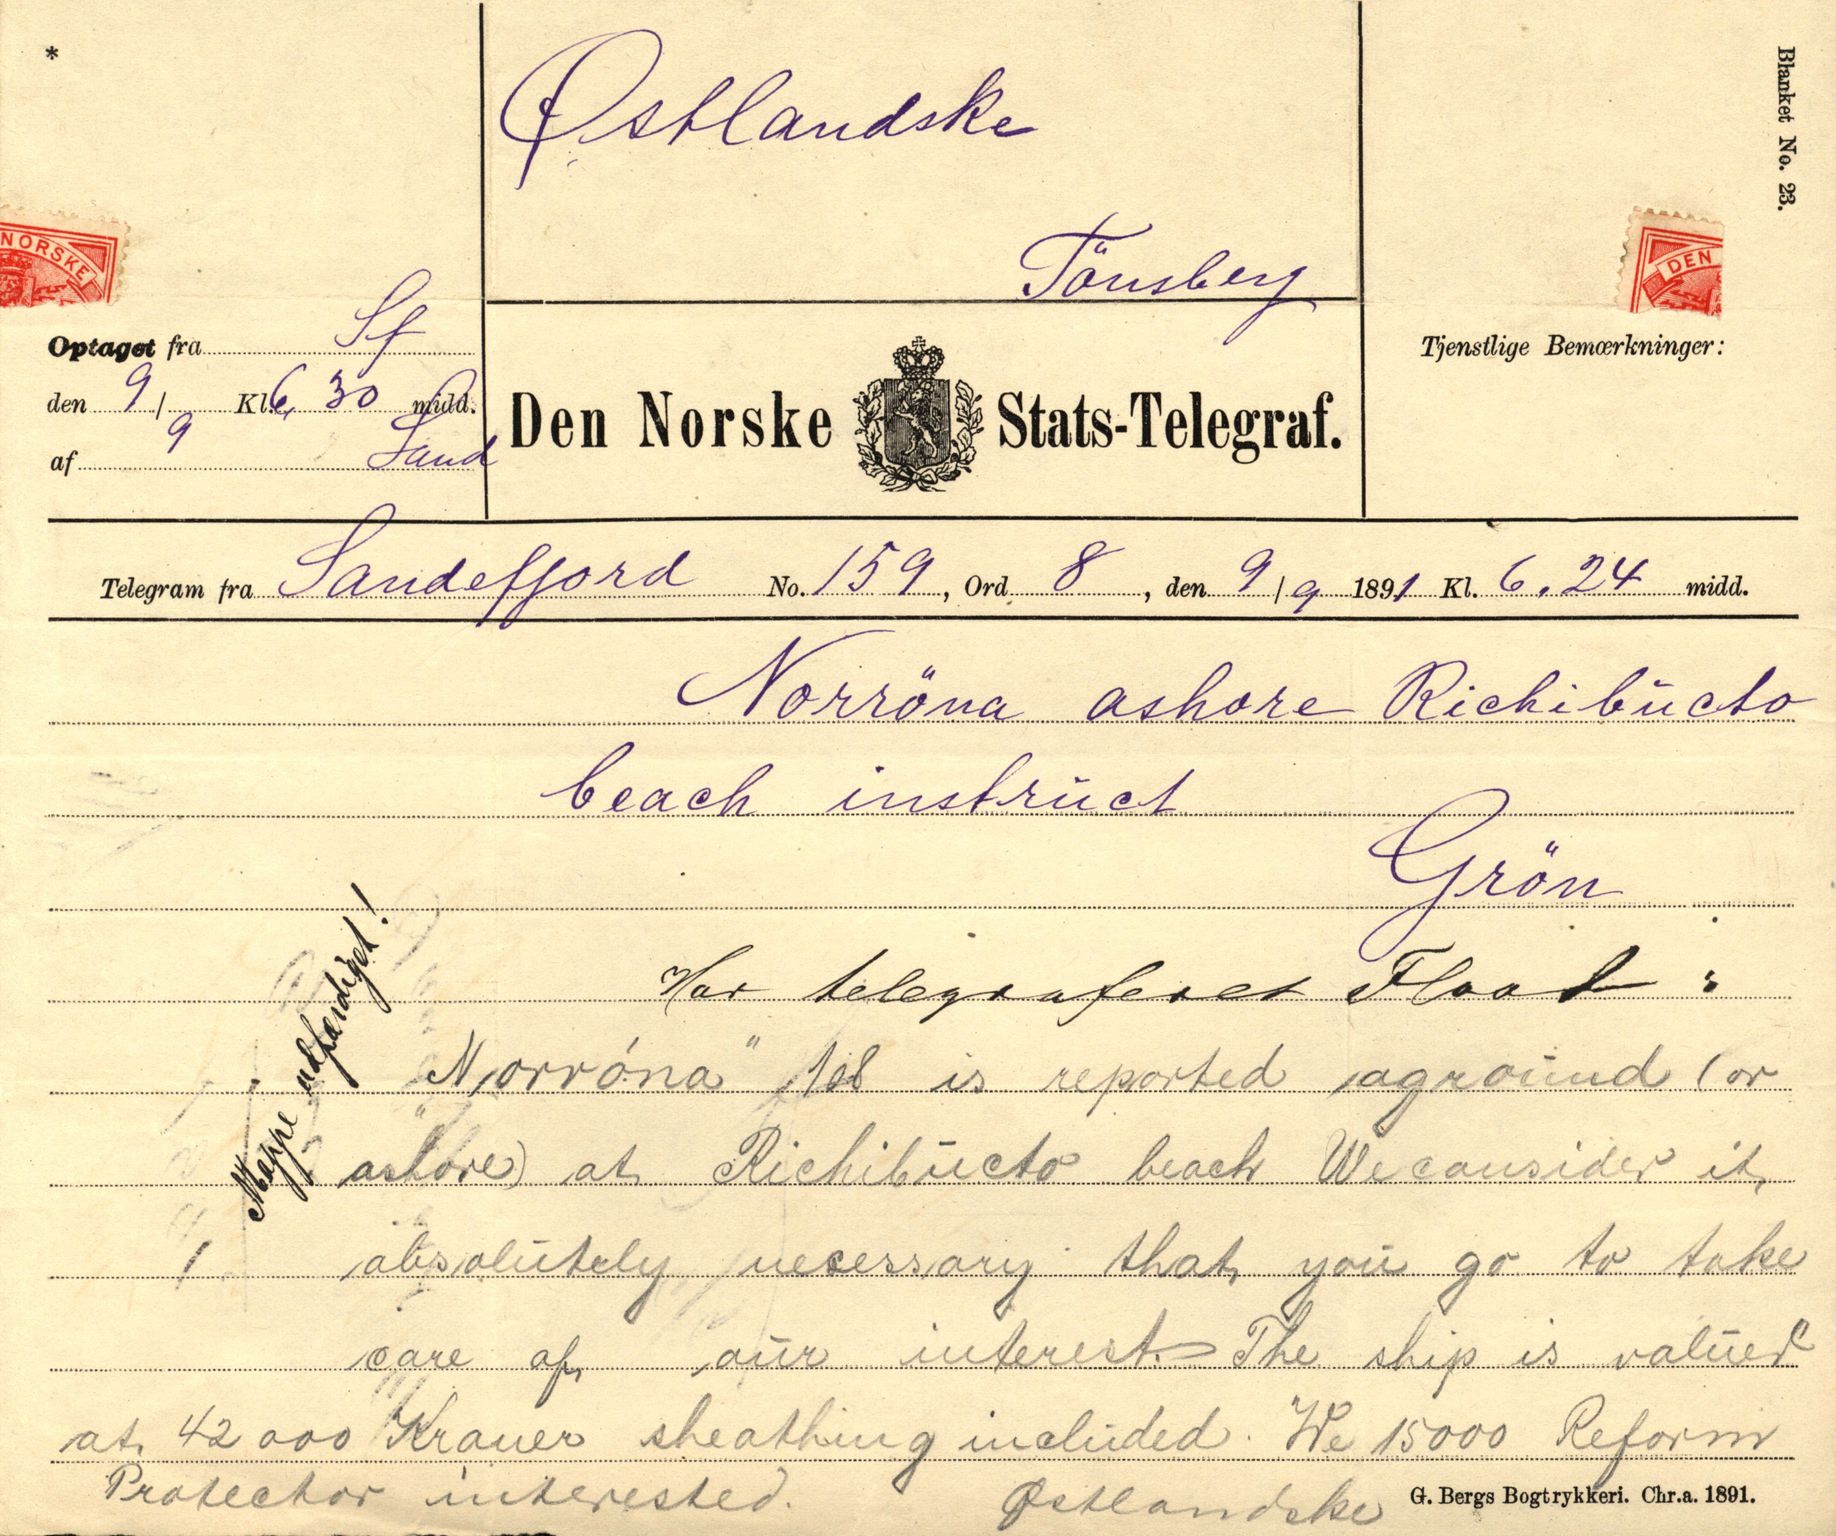 *
Østlandske
Blanket No. 23.
Tönsberg
NORSKE
DEN
Optaget fra Sf
den 9/9 Kl. 6,30 midd.
af Sand
Den Norske Stats-Telegraf.
Tjenstlige Bemærkninger:
Telegram fra Sandefjord No. 159, Ord 8, den 9/9 1891 Kl. 6.24 midd.
Norröna ashore Richibucto
beach instruct
Grön
Mappe udfærdiget!
Har telegraferet Flood :
"Norróna" 108 is reported aground (or
ashore) at Richibucto beach We consider it
absolutely necessary that you go to take
care of our interest. The ship is valued
at 42000 Kroner sheathing included. We 15000 Reform
Protector interested. Østlandske
G. Bergs Bogtrykkeri. Chr.a. 1891.